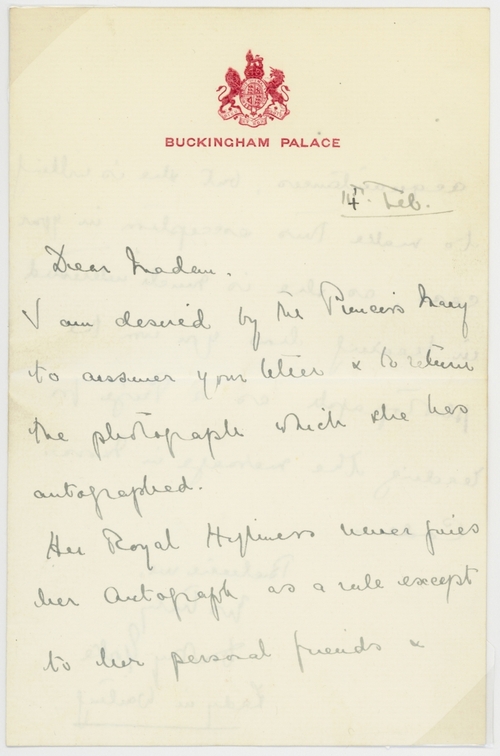 BUCKINGHAM PALACE
14. Feb.
Dear Madam.
I am desired by the Princess Mary
to answer your letter & to return
the photograph which she has
autographed.
Her Royal Highness never gives
her Autograph as a rule except
to her personal friends &